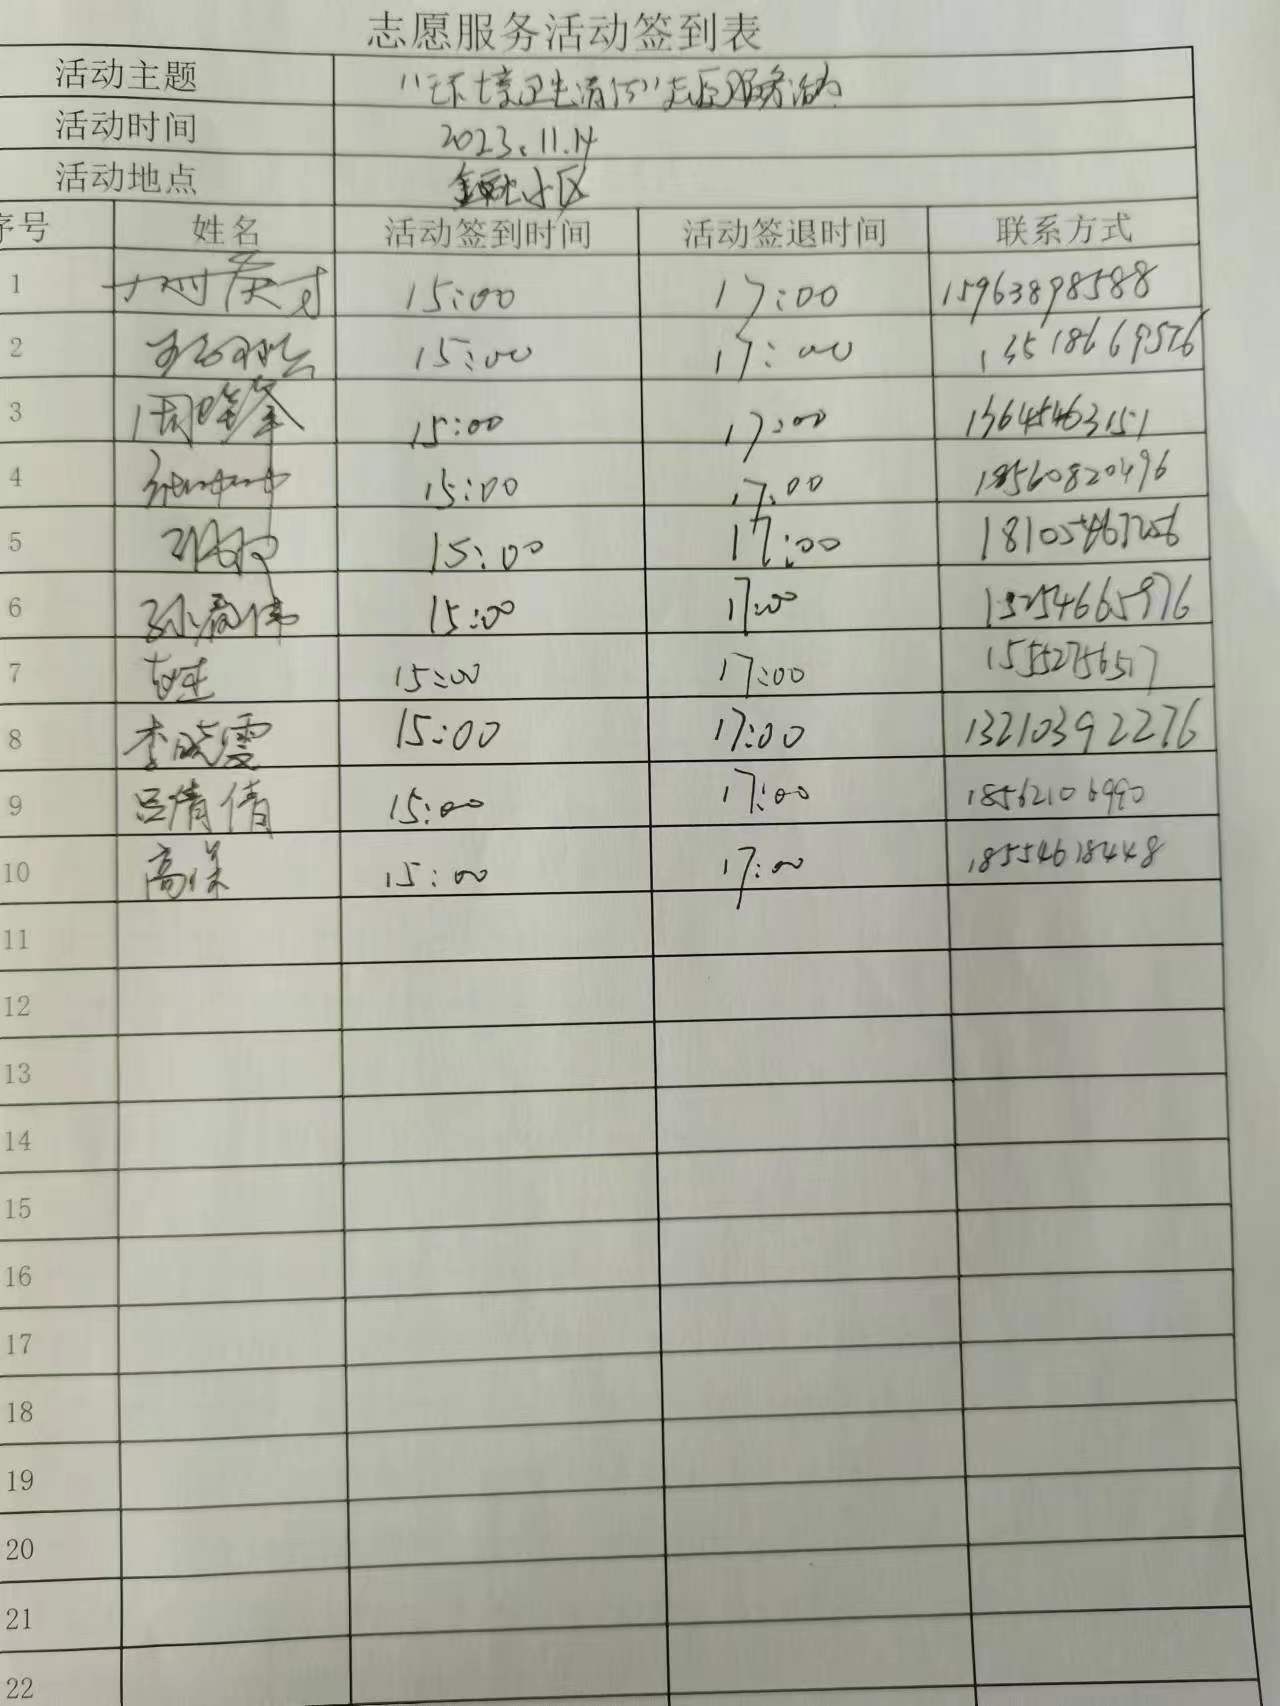 志愿服务活动签到表
活动主题 "环境卫生清洁"志愿服务活动
活动时间 2023.11.14
活动地点 小区
序号 姓名 活动签到时间 活动签退时间 联系方式
1 15:00 17:00 15963898588
2 15:00 17:00 13518669576
3 周晓 15:00 17:00 13645463151
4 15:00 17:00 18560820496
5 15:00 17:00
6 孙 伟 15:00 17:00 15254665976
7 15:00 17:00 15552756517
8 李晓雯 15:00 17:00 13210392276
9 吕倩倩 15:00 17:00 18562106990
10 高保 15:00 17:00 18554618448
11
12
13
14
15
16
17
18
19
20
21
22